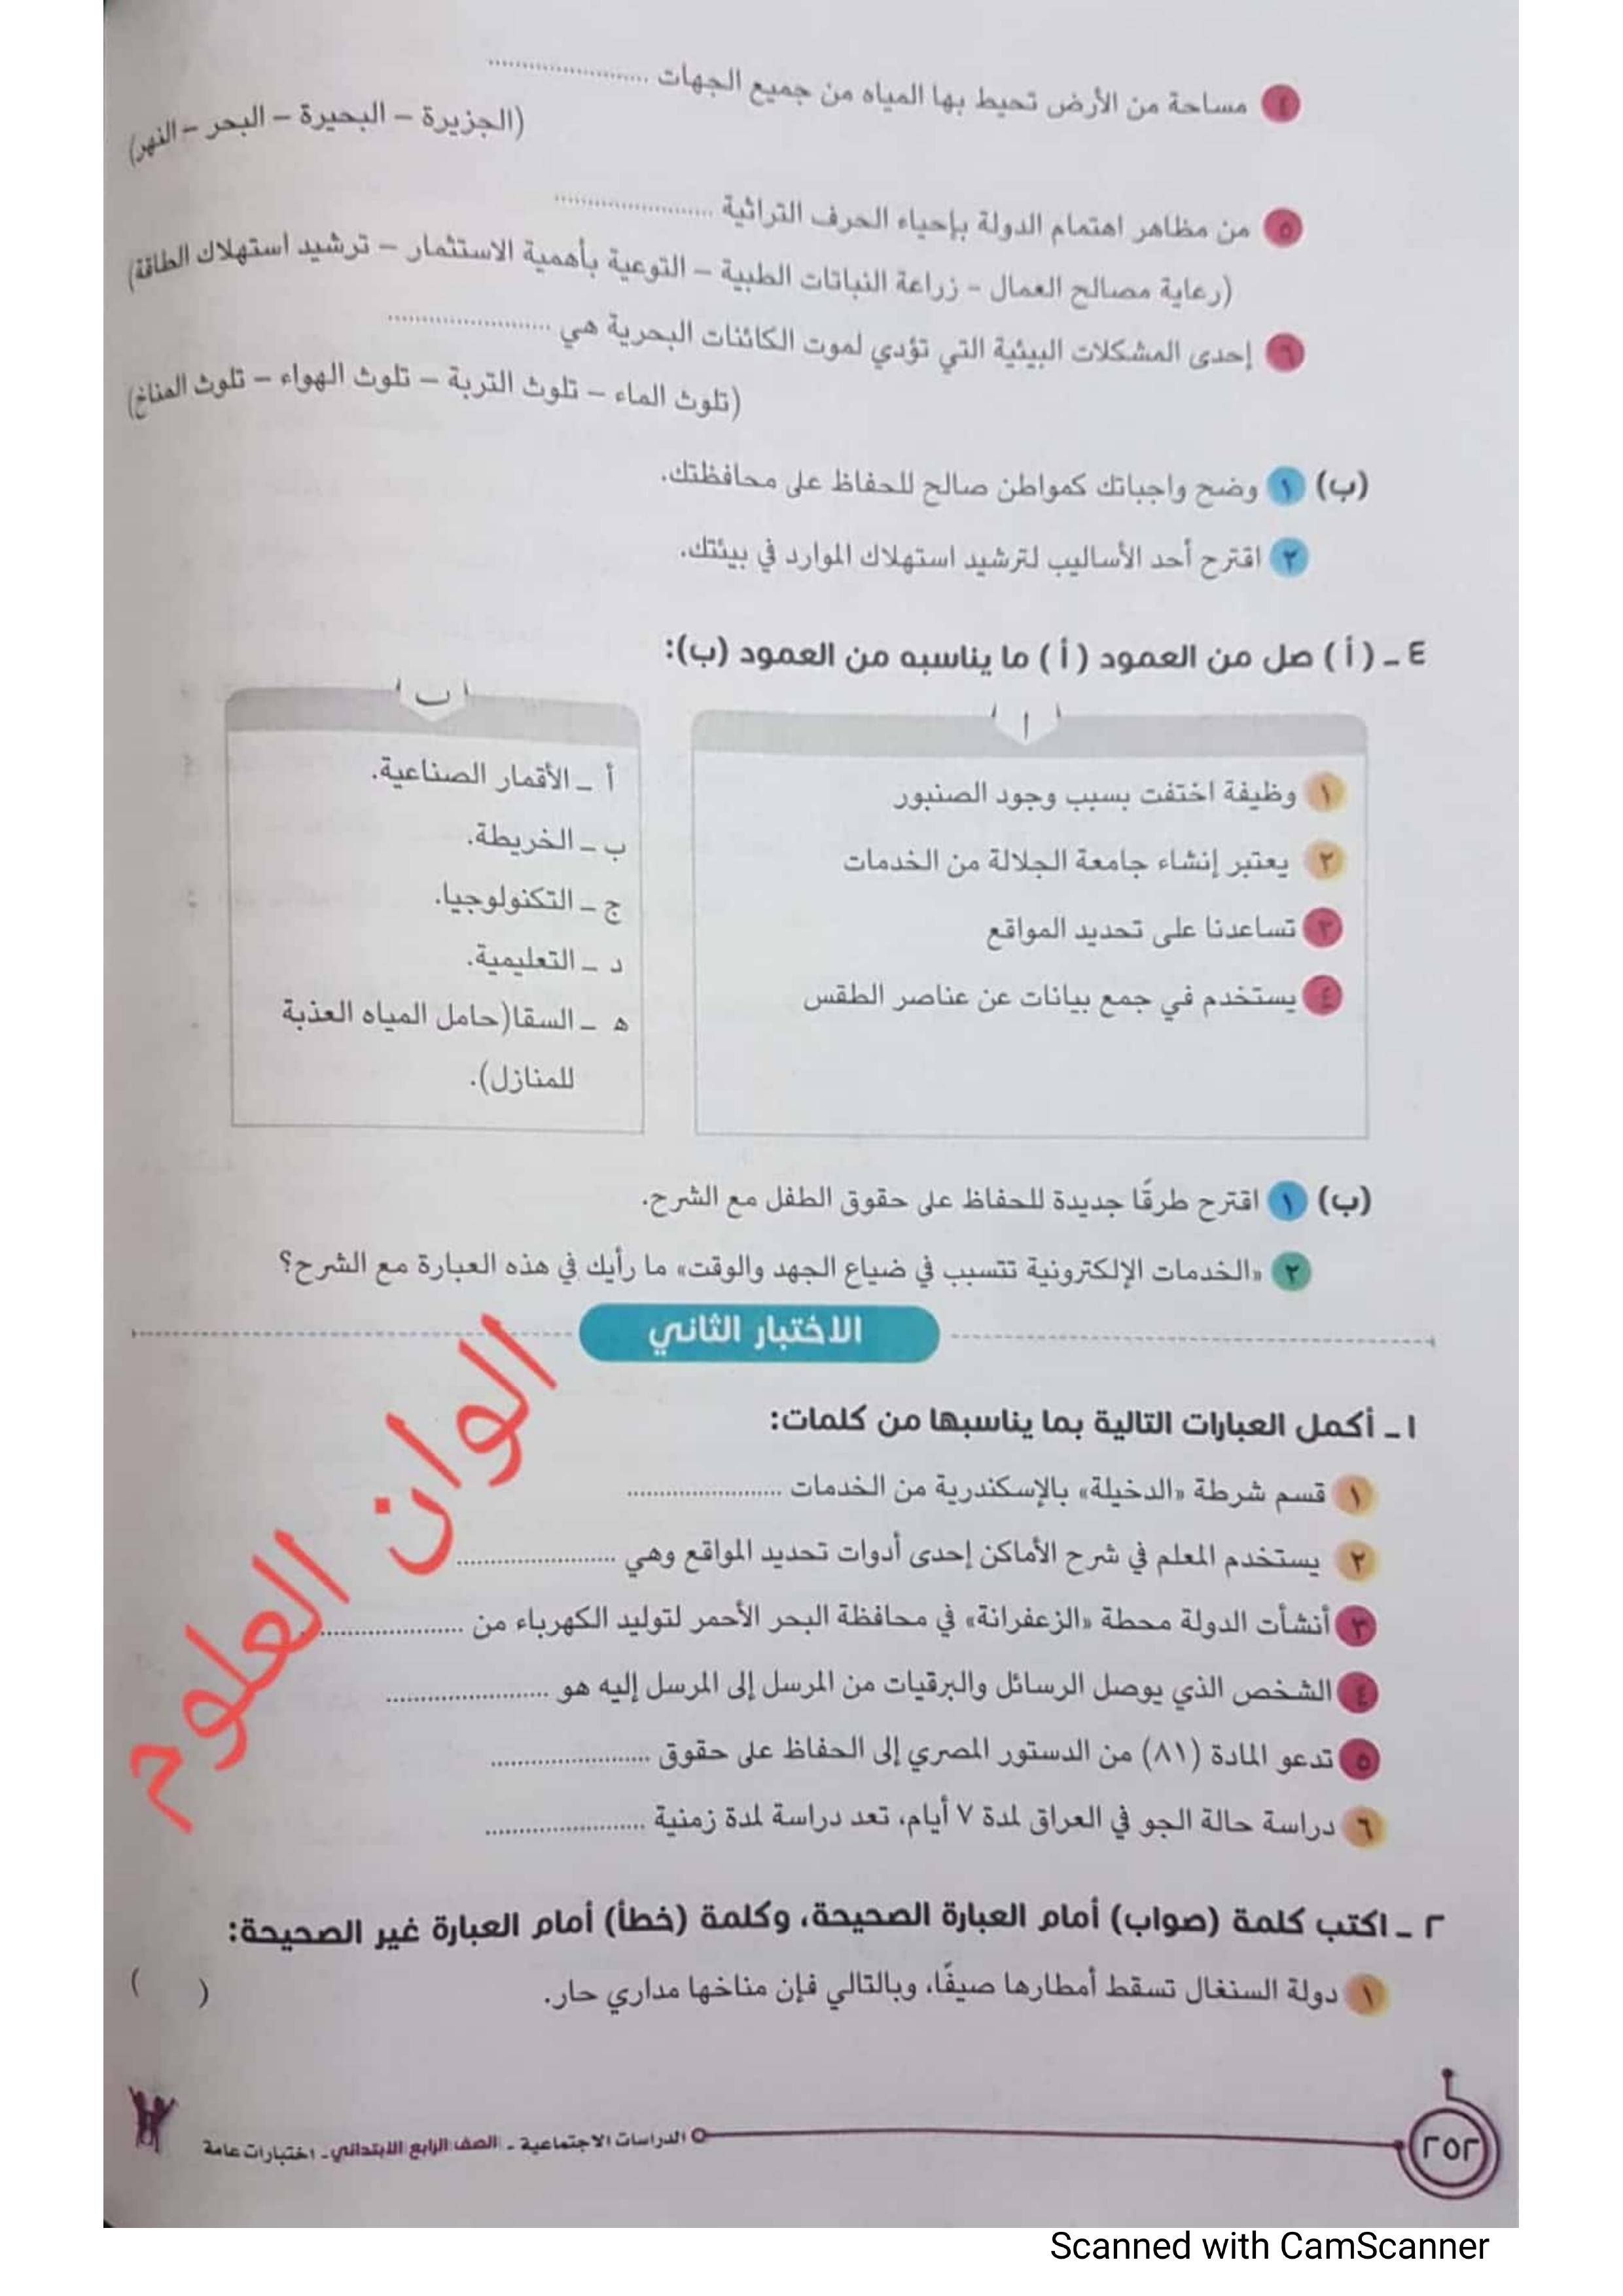 ٤ مساحة من الأرض تحيط بها المياه من جميع الجهات ......................
(الجزيرة – البحيرة – البحر – النهر)
٥ من مظاهر اهتمام الدولة بإحياء الحرف التراثية ......................
(رعاية مصالح العمال – زراعة النباتات الطبية – التوعية بأهمية الاستثمار – ترشيد استهلاك الطاقة)
٦ إحدى المشكلات البيئية التي تؤدي لموت الكائنات البحرية هي ......................
(تلوث الماء – تلوث التربة – تلوث الهواء – تلوث المناخ)
(ب) ١ وضح واجباتك كمواطن صالح للحفاظ على محافظتك.
٢ اقترح أحد الأساليب لترشيد استهلاك الموارد في بيئتك.
٤ ـ (أ) صل من العمود (أ) ما يناسبه من العمود (ب):
أ
١ وظيفة اختفت بسبب وجود الصنبور
٢ يعتبر إنشاء جامعة الجلالة من الخدمات
٣ تساعدنا على تحديد المواقع
٤ يستخدم في جمع بيانات عن عناصر الطقس
ب
أ ـ الأقمار الصناعية.
ب ـ الخريطة.
ج ـ التكنولوجيا.
د ـ التعليمية.
ه ـ السقا(حامل المياه العذبة
للمنازل).
(ب) ١ اقترح طرقًا جديدة للحفاظ على حقوق الطفل مع الشرح.
٢ «الخدمات الإلكترونية تتسبب في ضياع الجهد والوقت» ما رأيك في هذه العبارة مع الشرح؟
الاختبار الثاني
١ ـ أكمل العبارات التالية بما يناسبها من كلمات:
١ قسم شرطة «الدخيلة» بالإسكندرية من الخدمات ......................
٢ يستخدم المعلم في شرح الأماكن إحدى أدوات تحديد المواقع وهي ......................
٣ أنشأت الدولة محطة «الزعفرانة» في محافظة البحر الأحمر لتوليد الكهرباء من ......................
٤ الشخص الذي يوصل الرسائل والبرقيات من المرسل إلى المرسل إليه هو ......................
٥ تدعو المادة (٨١) من الدستور المصري إلى الحفاظ على حقوق ......................
٦ دراسة حالة الجو في العراق لمدة ٧ أيام، تعد دراسة لمدة زمنية ......................
الوان العلوم
٢ ـ اكتب كلمة (صواب) أمام العبارة الصحيحة، وكلمة (خطأ) أمام العبارة غير الصحيحة:
١ دولة السنغال تسقط أمطارها صيفًا، وبالتالي فإن مناخها مداري حار. (    )
٢٥٢ الدراسات الاجتماعية ـ الصف الرابع الابتدائي ـ اختبارات عامة
Scanned with CamScanner